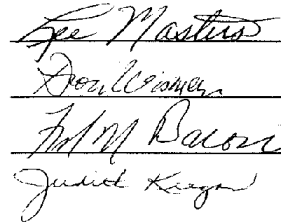 Lee Masters
Dori Wisman
M Bacon
Judith Keegan